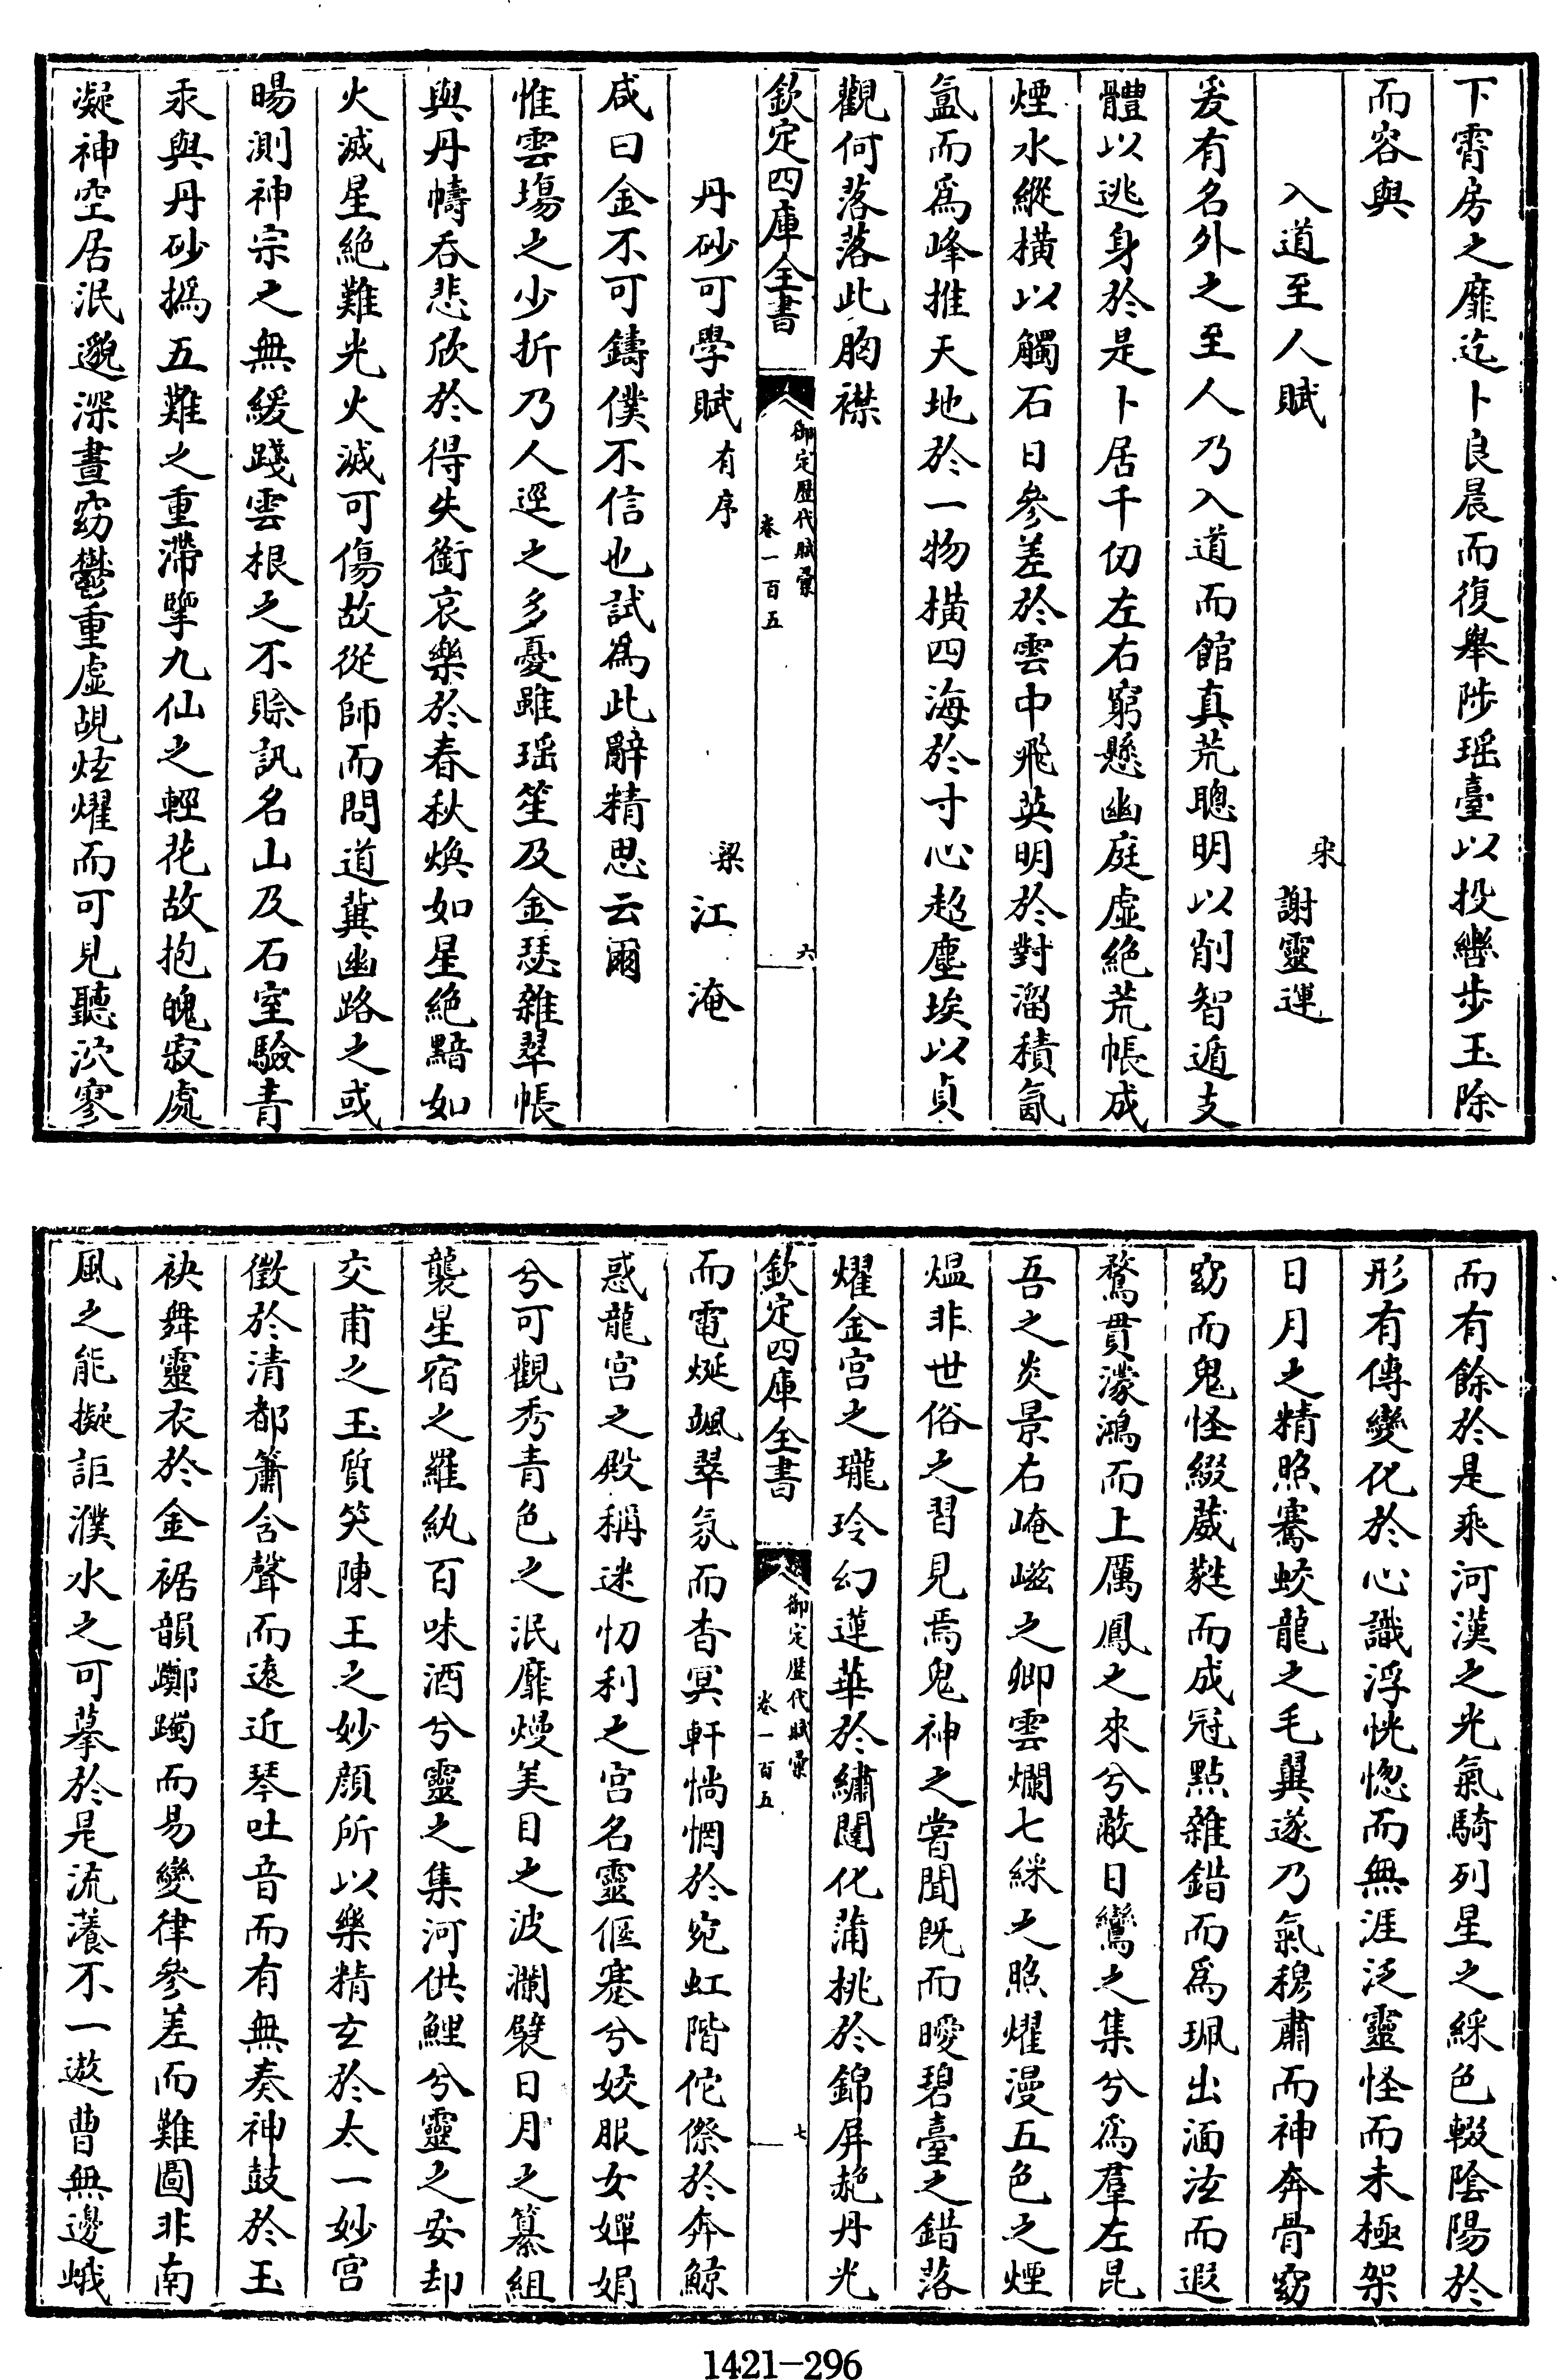 下霄房之靡迄卜良晨而復舉陟瑶臺以投轡步玉除
而容與
入道至人賦
宋
謝靈運
爰有名外之至人乃入道而館真荒聰明以削智遁支
體以逃身於是卜居千仞左右窮懸幽庭虛絶荒帳成
煙水縱橫以觸石日參差於雲中飛英明於對溜積氤
氳而為峰推天地於一物橫四海於寸心超塵埃以貞
觀何落落此胸襟
欽定四庫全書
御定歷代賦彙
卷一百五
六
丹砂可學賦有序
梁
江淹
咸曰金不可鑄僕不信也試為此辭精思云爾
惟雲塲之少折乃人逕之多憂雖瑶笙及金瑟雜翠帳
與丹幬吞悲欣於得失銜哀樂於春秋煥如星絶黯如
火滅星絶難光火滅可傷故從師而問道冀幽路之或
暘測神宗之無緩踐雲根之不賒訊名山及石室驗青
汞與丹砂撝五難之重滯擥九仙之輕花故抱魄寂處
凝神空居泯邈深晝窈鬱重虛覘炫燿而可見聽泬寥
而有餘於是乘河漢之光氣騎列星之綵色輟陰陽於
形有傳變化於心識浮恍惚而無涯泛靈怪而未極架
日月之精照騫蛟龍之毛翼遂乃氣穆肅而神奔骨窈
窈而鬼怪綴葳蕤而成冠點雜錯而為珮出湎泫而遐
騖貫濛鴻而上厲鳳之來兮蔽日鸞之集兮為羣左昆
吾之炎景右崦嵫之卿雲爛七綵之照燿漫五色之煙
煴非世俗之習見焉鬼神之嘗聞既而曖碧臺之錯落
燿金宫之瓏玲幻蓮華於繡闥化蒲桃於錦屏艴丹光
欽定四庫全書
御定歷代賦彙
卷一百五
七
而電烻颯翠氛而杳冥軒惝惘於宛虹階侘傺於奔鯨
惑龍宫之殿稱迷忉利之宫名靈偃蹇兮姣服女嬋娟
兮可觀秀青色之泯靡熳美目之波瀾襞日月之纂組
襲星宿之羅紈百味酒兮靈之集河供鯉兮靈之安却
交甫之玉質笑陳王之妙顔所以樂精玄於太一妙宫
徵於清都簫含聲而遠近琴吐音而有無奏神鼓於玉
袂舞靈衣於金裾韻躑躅而易變律參差而難圖非南
風之能擬詎濮水之可摹於是流瀁不一遨曹無邊峨
1421-296